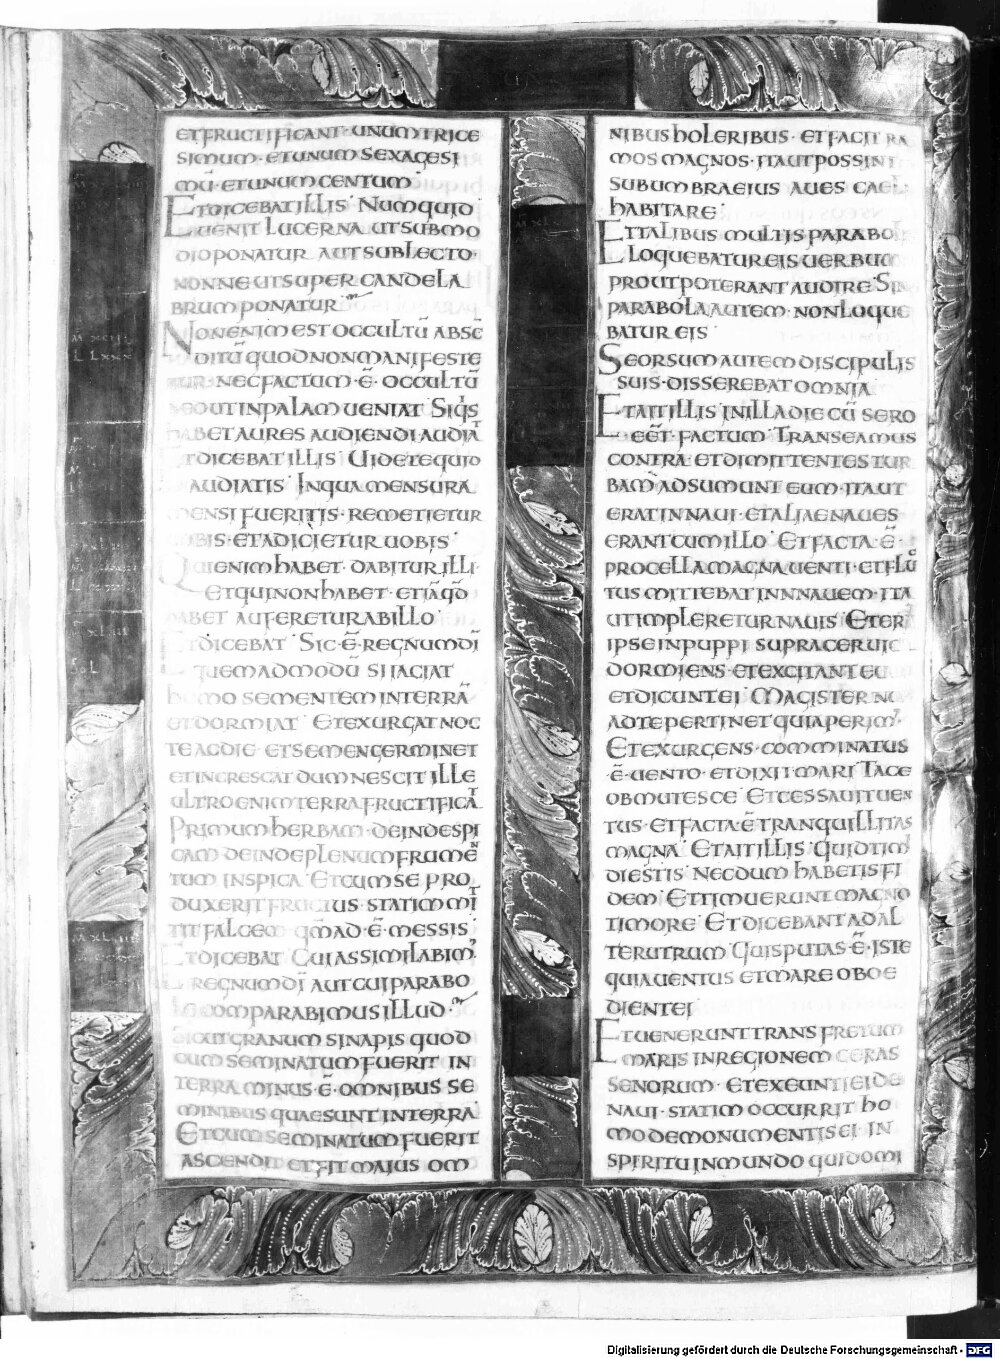 ETFRUCTIFICANT· UNUMTRICE
SIMUM· ETUNUM SEXAGESI
MŪ· ETUNUM CENTUM·
ETDICEBATILLIS· NUMQUID
UENIT LUCERNA UTSUBMO
DIOPONATUR AUTSUBLECTO·
NONNEUTSUPER CANDELA
BRUMPONATUR·
NONENIMESTOCCULTŪ ABSC̄
DITŪ QUODNONMANIFESTE
TUR· NECFACTUM· Ē· OCCULTŪ
SEDUTINPALAMUENIAT· SIQS
HABETAURES AUDIENDIAUDIAT
ETDICEBATILLIS· UIDETEQUID
AUDIATIS· INQUAMENSURA
MENSIFUERITIS· REMETIETUR
UOBIS· ETADICIETURUOBIS·
QUIENIMHABET· DABITURILLI·
ETQUINONHABET· ETIĀQD̄
HABET AUFERETURABILLO·
ETDICEBAT· SIC· Ē· REGNUMDĪ
QUEMADMODŪ SIIACIAT
HOMO SEMENTEMINTERRĀ
ETDORMIAT· ETEXURGATNOC
TEACDIE· ETSEMENGERMINET
ETINCRESCAT DUMNESCIT ILLE
ULTROENIMTERRAFRUCTIFICAT
PRIMUMHERBAM· DEINDESPI
CAM DEINDEPLENUMFRUMEN
TUM INSPICA· ETCUMSE PRO
DUXERITFRUCTUS· STATIMMIT
TITFALCEM· QM̄AD· Ē· MESSIS·
ETDICEBAT· CUIASSIMILABIM'
REGNUMDĪ AUTCUIPARABO
LECOMPARABIMUSILLUD·
SICUTGRANUM SINAPIS QUOD
CUM SEMINATUMFUERIT IN
TERRA MINUS· Ē· OMNIBUS SE
MINIBUS QUAESUNT INTERRA·
ETCUMSEMINATUMFUERIT
ASCENDIT ETFITMAIUS OM
NIBUSHOLERIBUS· ETFACIT RA
MOS MAGNOS· ITAUTPOSSINT
SUBUMBRAEIUS AUES CAEL
HABITARE·
ETTALIBUS MULTISPARABO
LLOQUEBATUREISUERBUM
PROUTPOTERANTAUDIRE· SIN
PARABOLAAUTEM NONLOQUE
BATUREIS·
SEORSUMAUTEMDISCIPULIS
SUIS· DISSEREBATOMNIA
ETAITILLIS INILLADIE CŪ SERO
EĒT· FACTUM· TRANSEAMUS
CONTRA· ETDIMITTENTESTUR
BAM ADSUMUNTEUM· ITAUT
ERATINNAUI· ETALIAENAUES
ERANTCUMILLO· ETFACTA· Ē·
PROCELLAMAGNAUENTI· ETFLU
TUSMITTEBATINNAUEM· ITA
UTIMPLERETURNAUIS· ETERI
IPSEINPUPPI SUPRACERUIC
DORMIENS· ETEXCITANTEU
ETDICUNTEI· MAGISTER NO
ADTEPERTINETQUIAPERIM'
ETEXURGENS· COMMINATUS
·Ē· UENTO· ETDIXITMARI· TACE
OBMUTESCE· ETCESSAUITUEN
TUS· ETFACTA· Ē TRANQUILLITAS
MAGNA· ETAITILLIS· QUIDTIMI
DIESTIS· NECDUM HABETISFI
DEM· ETTIMUERUNTMAGNO
TIMORE· ETDICEBANTADAL
TERUTRUM· QUISPUTAS· Ē· ISTE
QUIAUENTUS ETMARE OBOE
DIENTEI·
ETUENERUNTTRANSFRETUM
MARIS INREGIONEM GERAS
SENORUM· ETEXEUNTIEIDE
NAUI· STATIM OCCURRIT HO
MODEMONUMENTISEI· IN
SPIRITUINMUNDO QUIDOMI
Digitalisierung gefördert durch die Deutsche Forschungsgemeinschaft - DFG